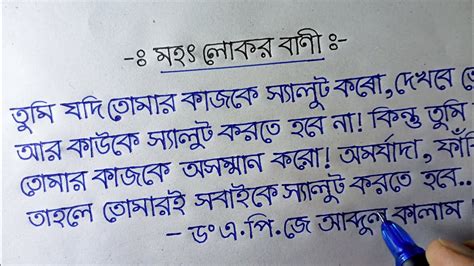 -ঃ মহৎ লোকর বাণী ঃ-
তুমি যদি তোমার কাজকে স্যালুট করো, দেখবে
আর কাউকে স্যালুট করতে হবে না! কিন্তু তুমি
তোমার কাজকে অসম্মান করো! অমর্যাদা,
তাহলে তোমারই সবাইকে স্যালুট করতে হবে..
- ডঃ এ.পি.জে আব্দুল কালাম